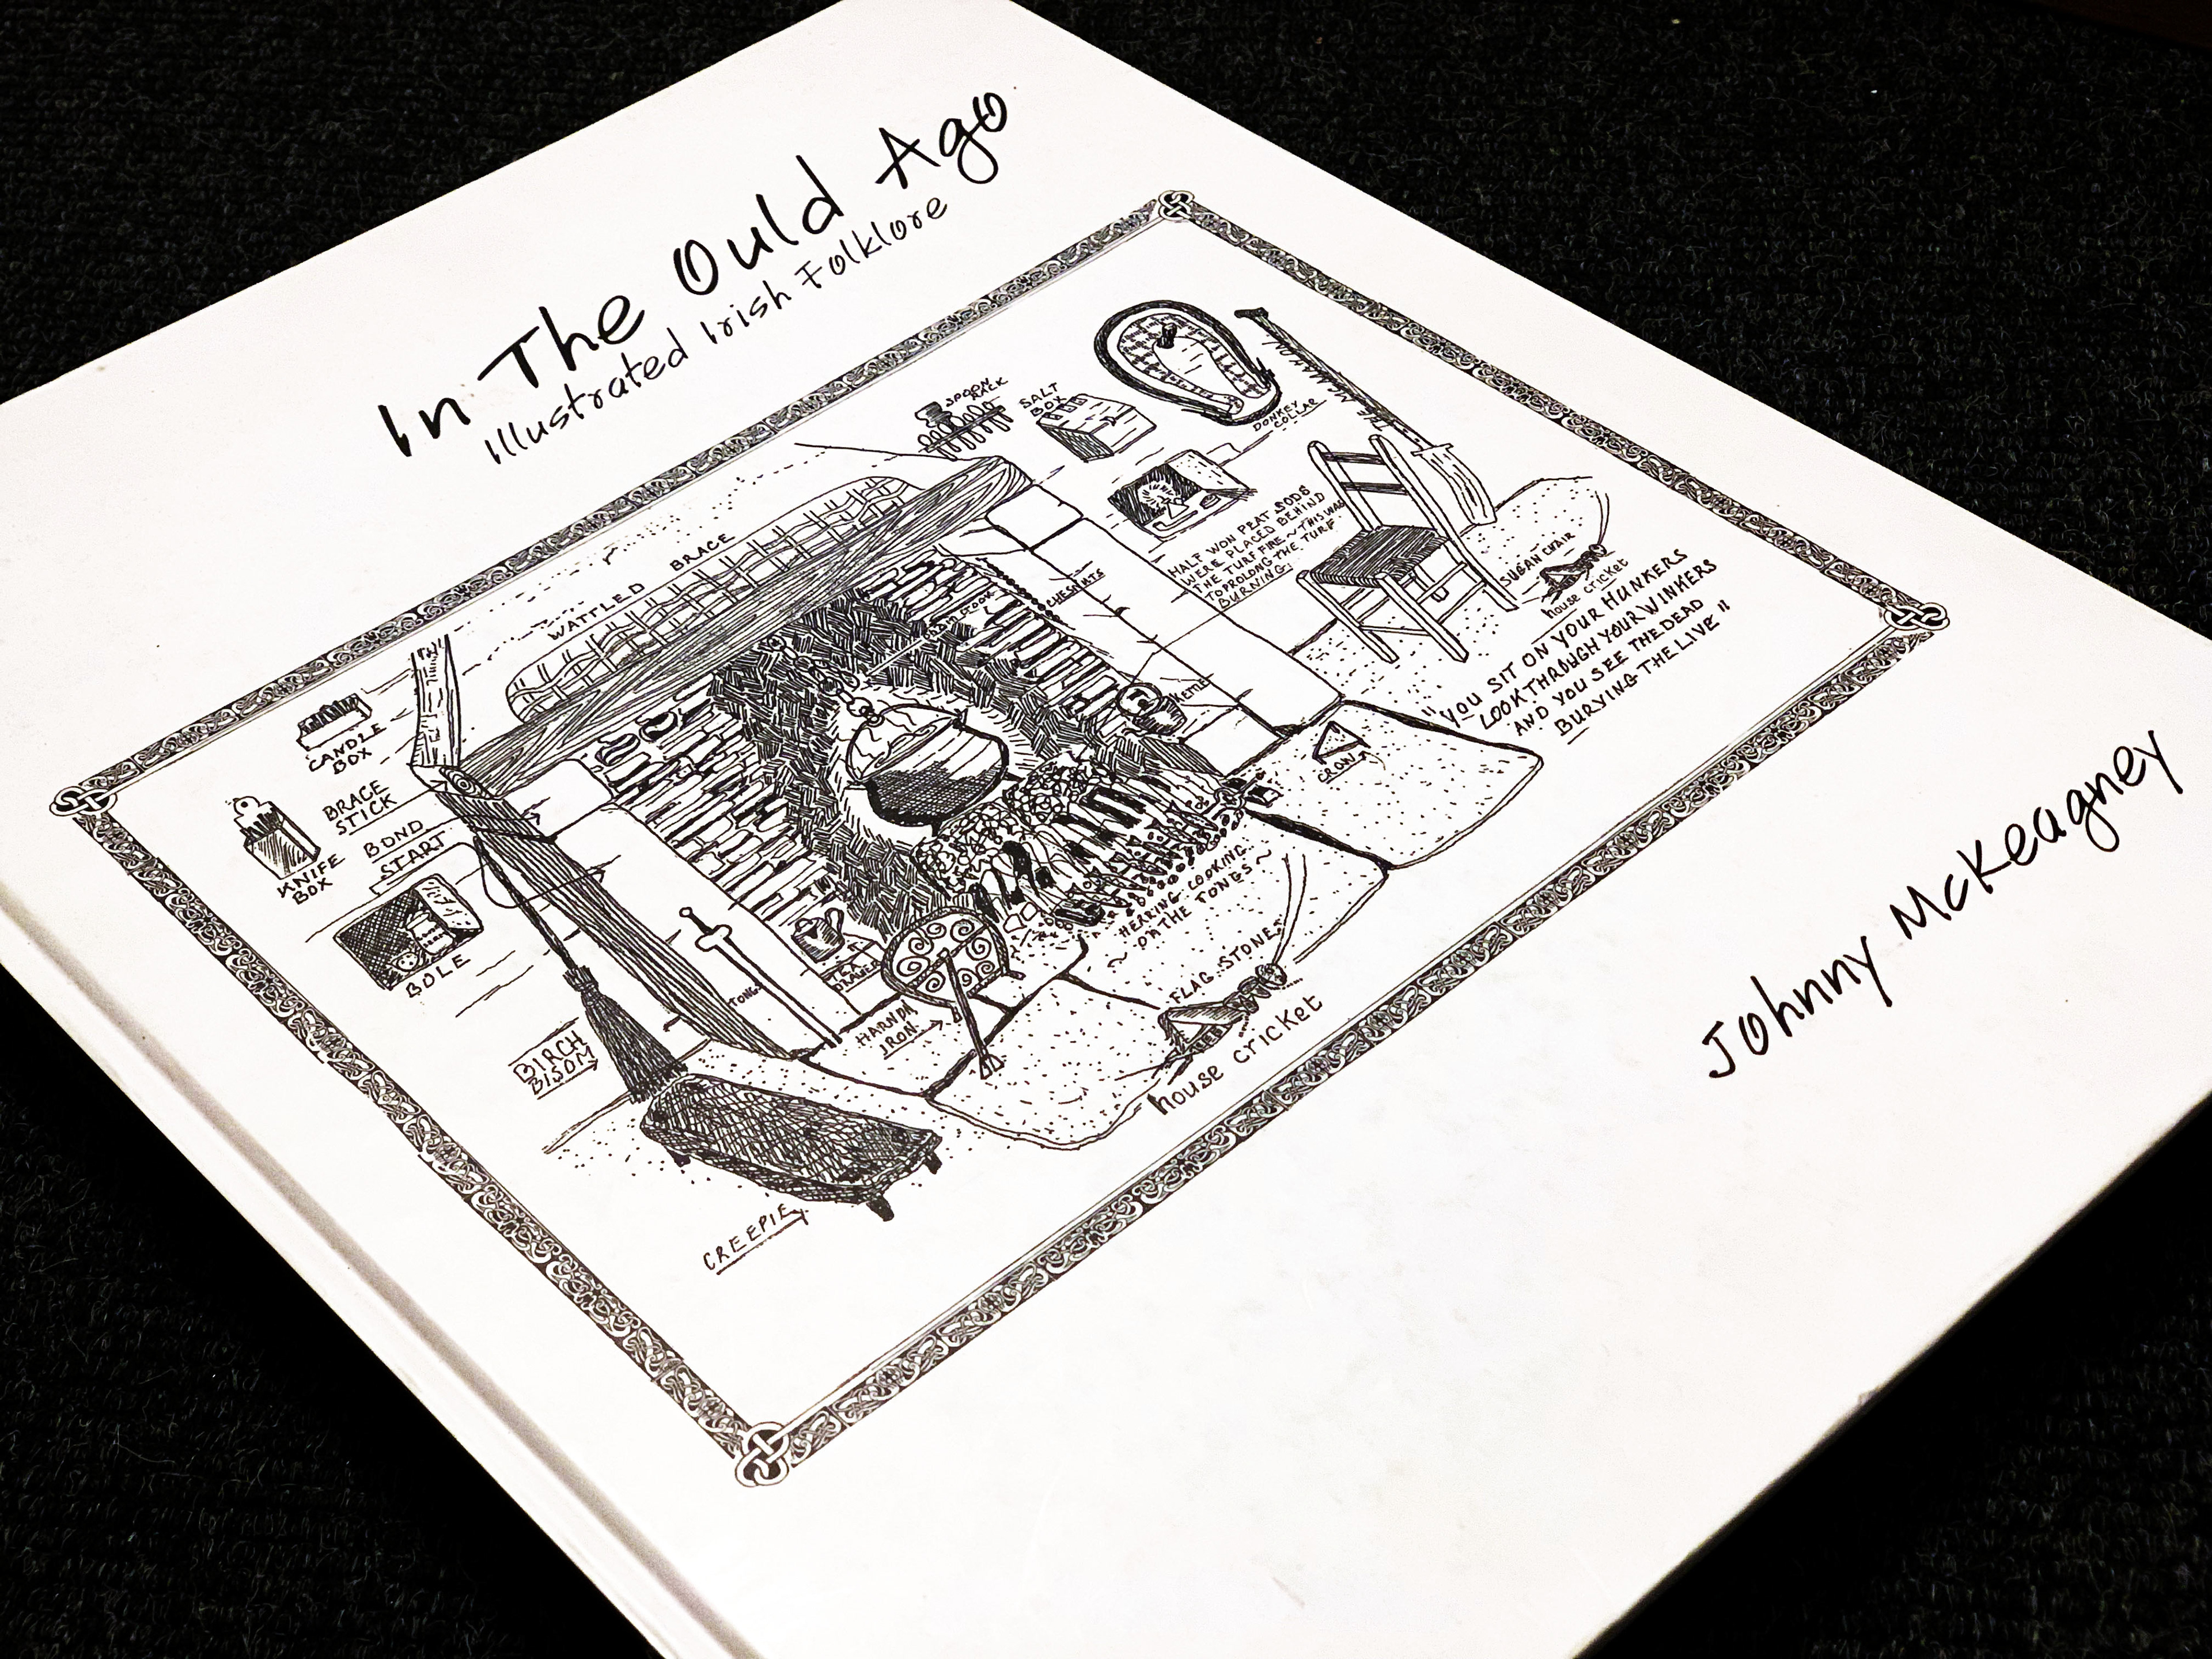 In The Ould Ago
Illustrated Irish Folklore
SPOON
RACK
SALT
BOX
DONKEY
COLLAR
WATTLED BRACE
CANDLE
BOX
KNIFE
BOX
BRACE
STICK
BOND
START
BOLE
HALF WON PEAT SODS
WERE PLACED BEHIND
THE TURF FIRE ~ THIS WAS
TO PROLONG THE TURF
BURNING.
SUGAN CHAIR
house cricket
"YOU SIT ON YOUR HUNKERS
LOOK THROUGH YOUR WINKERS
AND YOU SEE THE DEAD
BURYING THE LIVE"
KETTLE
CROW
HERRING COOKING
~ ON THE TONGS ~
FLAG STONES
house cricket
TONGS
TEA
DRAWER
HARNON
IRON
BIRCH
BISOM
CREEPIE
Johnny McKeagney